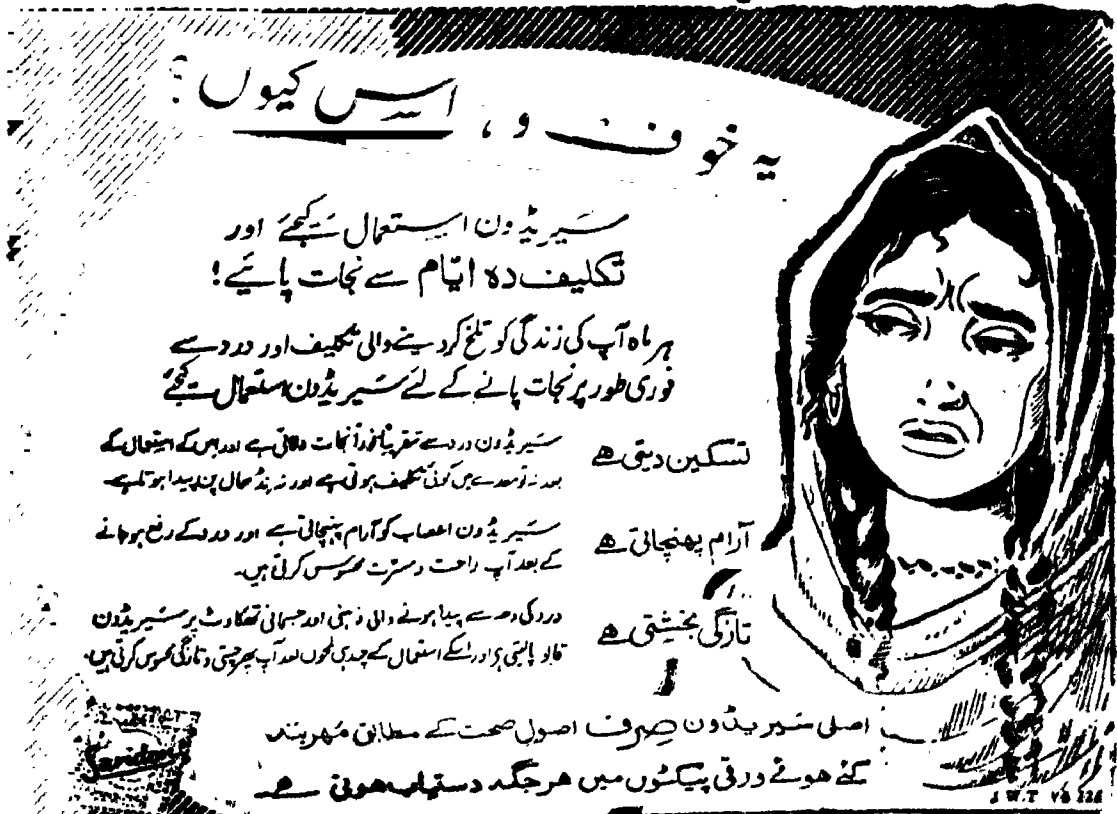 یہ خوف و ہراس کیوں؟
سَیریڈون استعمال کیجئے اور
تکلیف دہ ایّام سے نجات پائیے!
ہر ماہ آپ کی زندگی کو تلخ کر دینے والی تکلیف اور درد سے
فوری طور پر نجات پانے کے لئے سَیریڈون استعمال کیجئے
تسکین دیتی ہے
سَیریڈون درد سے تقریباً فوراً نجات دلاتی ہے اور اس کے استعمال کے
بعد نہ تو معدے میں کوئی تکلیف ہوتی ہے اور نہ پیدا ہوتا ہے۔
آرام پہنچاتی ہے
سَیریڈون اعصاب کو آرام پہنچاتی ہے اور درد کے رفع ہو جانے
کے بعد آپ راحت و مسرت محسوس کرتی ہیں۔
تازگی بخشتی ہے
درد کی وجہ سے پیدا ہونے والی ذہنی اور جسمانی تھکاوٹ پر سَیریڈون
قابو پالیتی ہے اور اسکے استعمال کے چند ہی لمحوں بعد آپ پھر چستی و تازگی محسوس کرتی ہیں۔
اصلی سَیریڈون صِرف اصولِ صحت کے مطابق مُہر بند
کئے ہوئے ورقی پیکٹوں میں ہر جگہ دستیاب ہوتی ہے۔
Saridon
J.W.T